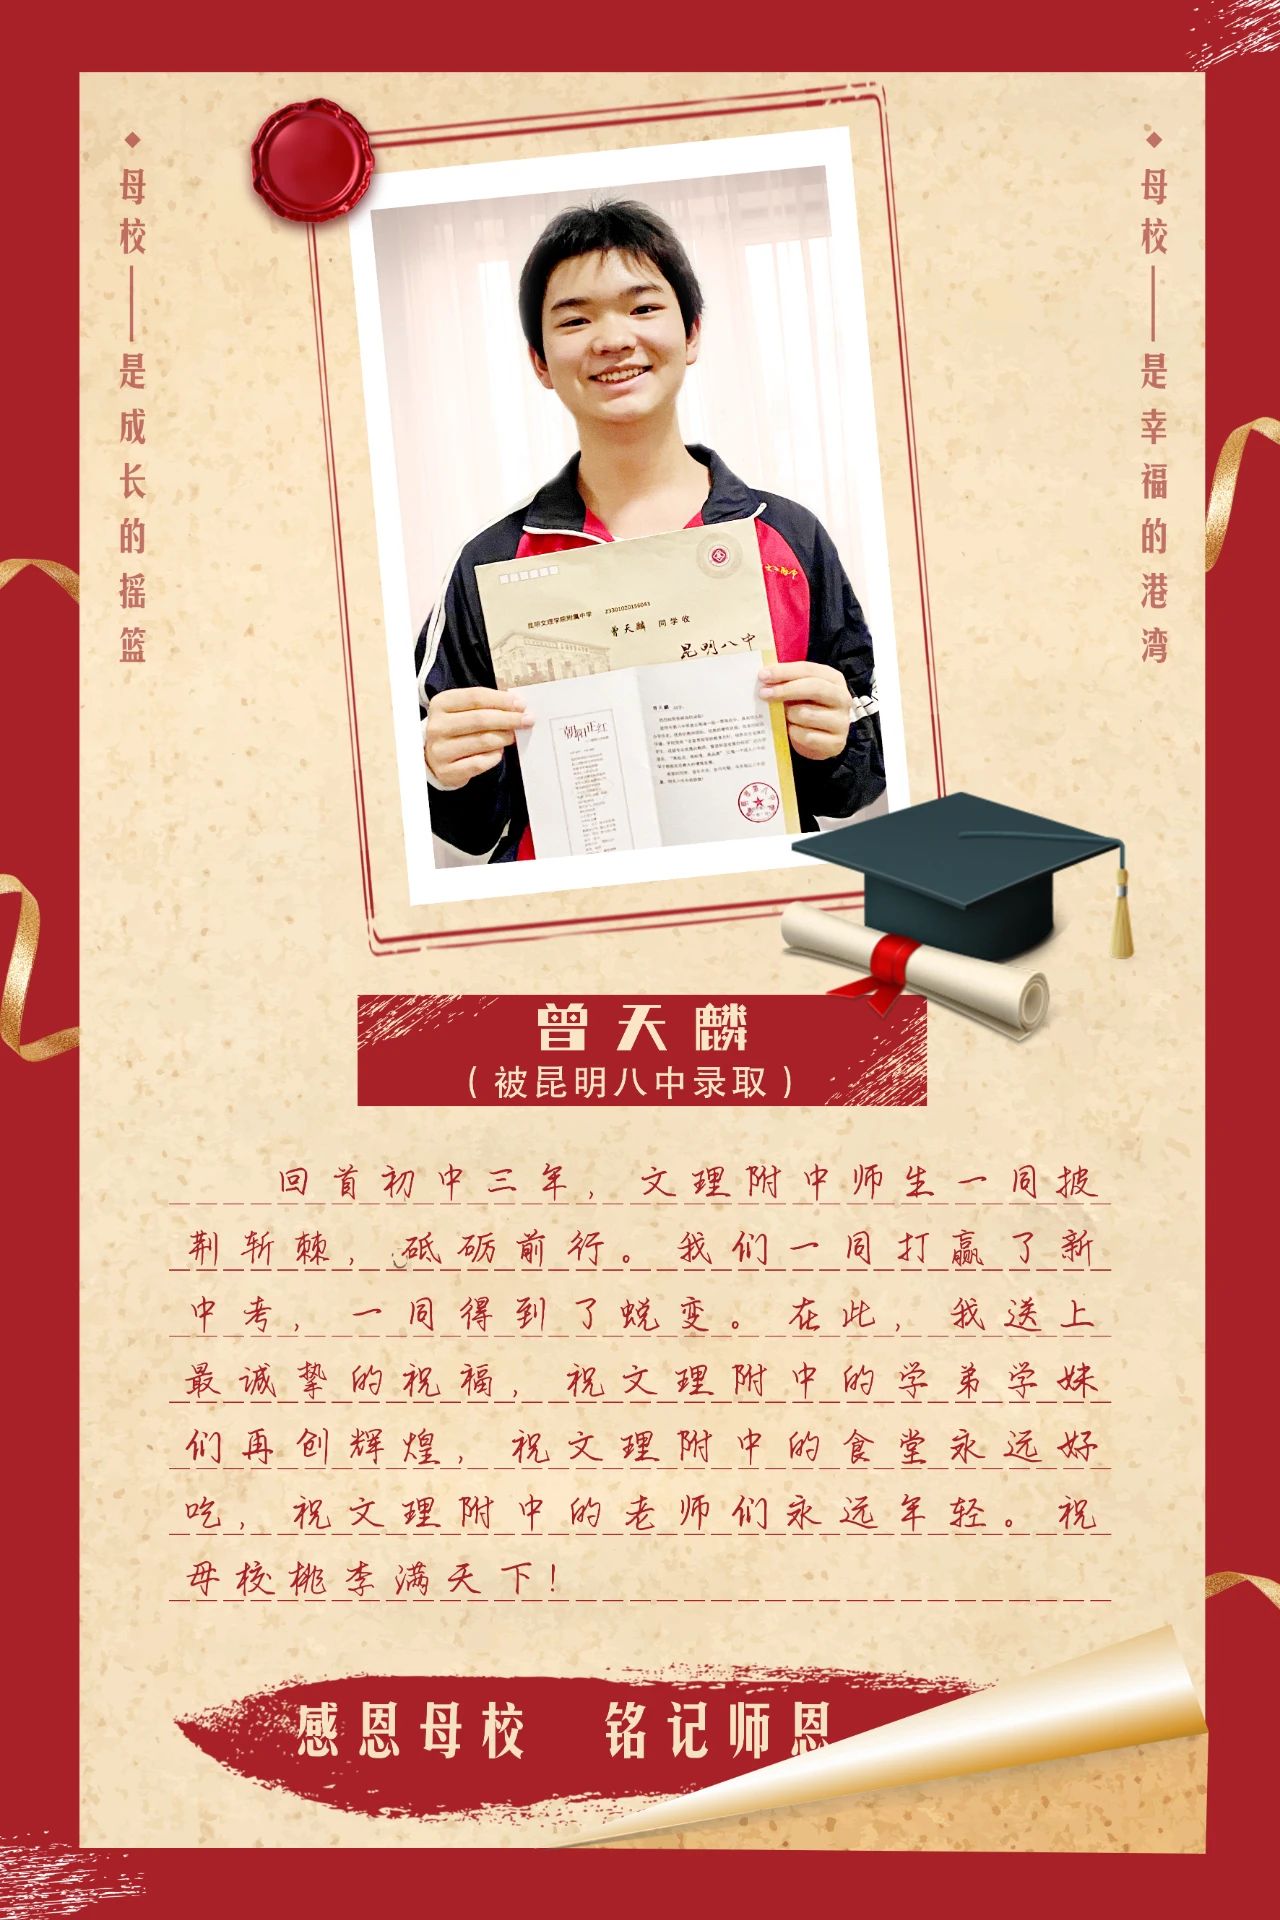 母校——是成长的摇篮
母校——是幸福的港湾
昆明文理学院附属中学
曾天麟 同学收
昆明八中
朝阳正红
曾天麟
曾天麟
(被昆明八中录取)
回首初中三年,文理附中师生一同披
荆斩棘,砥砺前行。我们一同打赢了新
中考,一同得到了蜕变。在此,我送上
最诚挚的祝福,祝文理附中的学弟学妹
们再创辉煌,祝文理附中的食堂永远好
吃,祝文理附中的老师们永远年轻。祝
母校桃李满天下!
感恩母校 铭记师恩